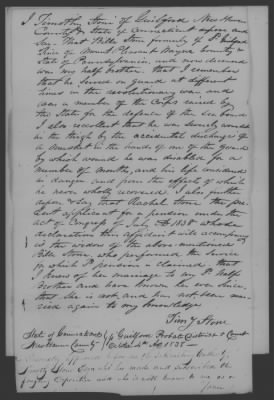 I Timothy Stone of Guilford New Haven
County & State of Connecticut depose and
say That Bille Stone formerly of Guilford
since of Mount Pleasant Wayne County &
State of Pennsylvania, and now deceased
was my half brother, that I remember
that he served on guard at different
times in the revolutionary war and
was a member of the Corps raised by
the State for the defence of the sea board
I also recollect that he was severely wounded
in the thigh by the accidental discharge of
a musket in the hands of one of the guard
by which wound he was disabled for a
number of months, and his life considered
in danger and from the effect of which
he never wholly recovered I also further
depose & say that Rachel Stone the pre-
sent applicant for a pension under the
act of Congress of July 7th 1838 whose
declaration this affidavit will accompany
is the widow of the above-mentioned
Bille Stone who performed the service
for which Pension is claimed that
I knew of her marriage to my half
brother and have known her ever since,
that she is not, and has not been mar-
ried again to my knowledge
Timy Stone
State of Connecticut Guilford Probate District & Court
New Haven County 1838